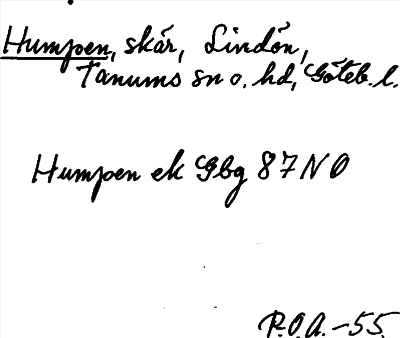 Humpen, skär, Lindön,
Tanums sn o. hd, Göteb. l.
Humpen ek Gbg 87 NO
P.O.A. -55.